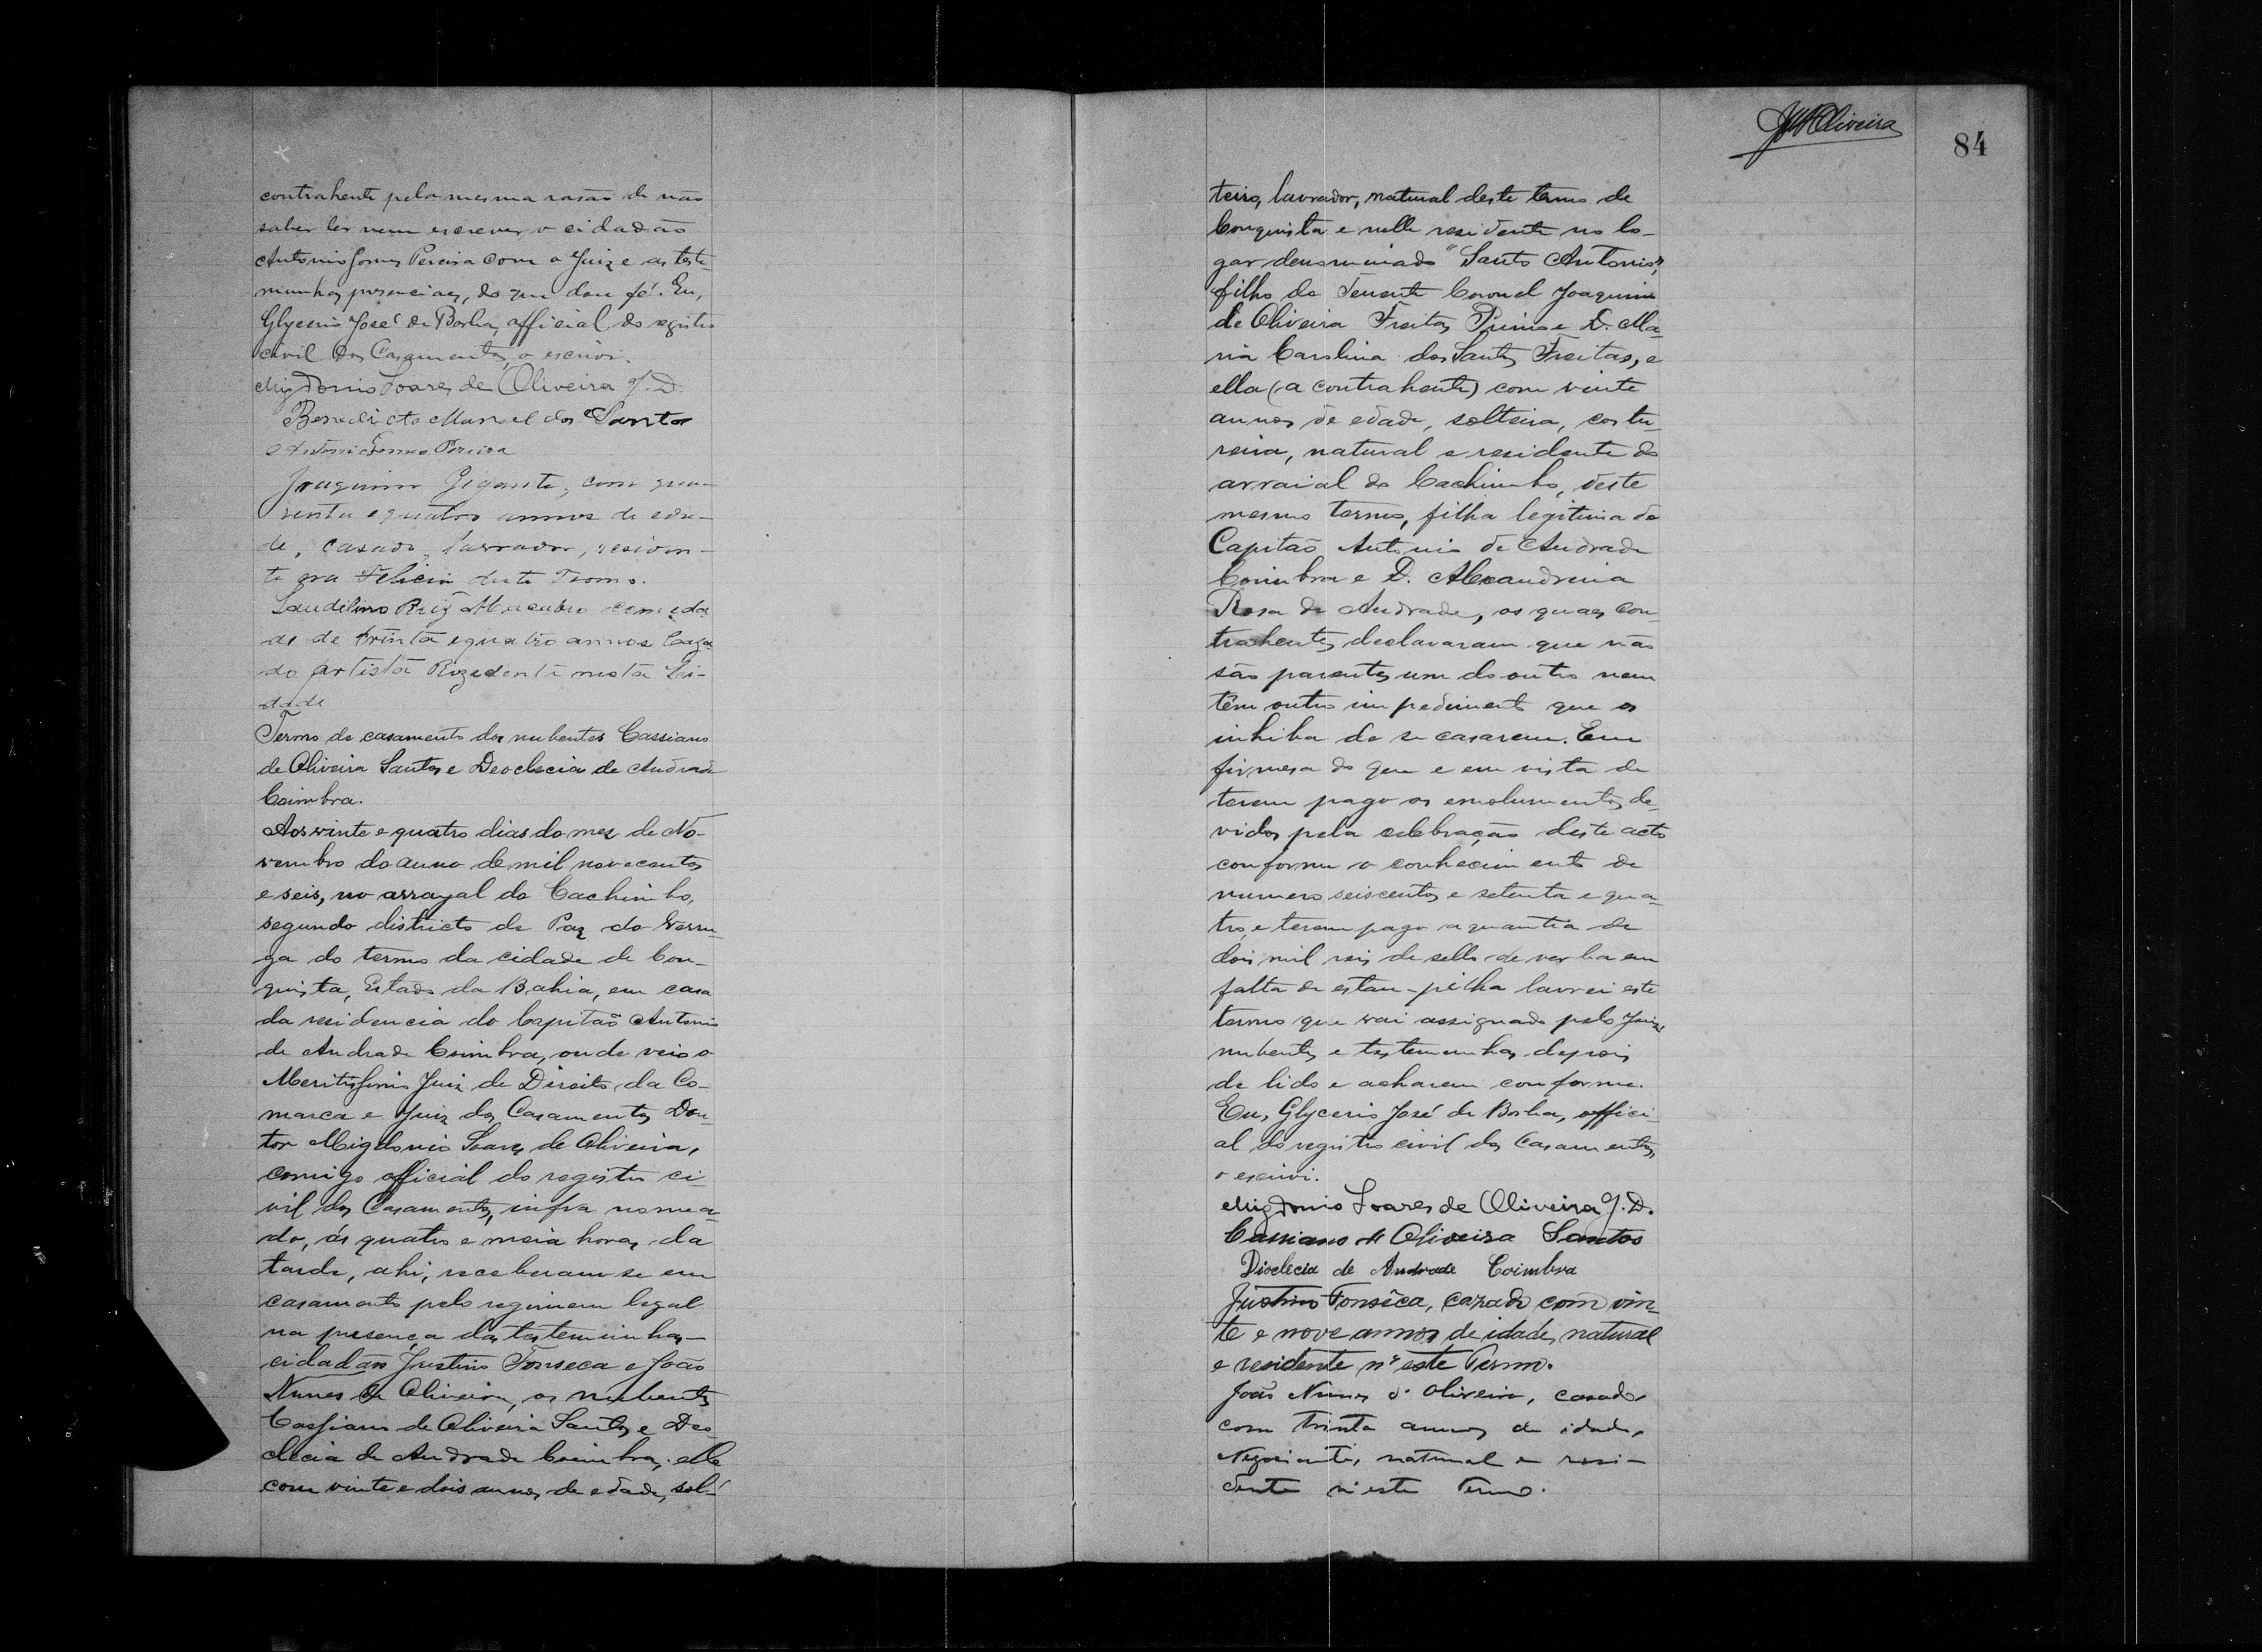 contrahente pela mesma rasão de não
saber ler nem escrever o cidadão
Antonio Gomes Pereira com o Juiz e as teste-
munhas presenciaes, do que dou fé. Eu,
Glycerio José de Borba, official do registro
civil dos Casamentos, o escrivi.
Migdonio Soares de Oliveira J. D.
Benedicto Manoel dos Santos
Antonio Gomes Pereira
Joaquim Gigante, com qua-
renta e quatro annos de eda-
de, casado, lavrador, residen-
te deste Termo.
com eda
de de trinta e quatro annos Caza
do artista Rezedente nesta Ci-
dade
Termo de casamento dos nubentes Cassiano
de Oliveira Santos e Deoclecia de Andrade
Coimbra.
Aos vinte e quatro dias do mez de No-
vembro do anno de mil novecentos
e seis, no arrayal do Cachimbo,
segundo districto de Paz do Verru-
ga do termo da cidade de Con-
quista, Estado da Bahia, em casa
da residencia do Capitão Antonio
de Andrade Coimbra, onde veio o
Meritissimo Juiz de Direito da Co-
marca e Juiz dos Casamentos Dou-
tor Migdonio Soares de Oliveira,
comigo official do registro ci-
vil dos Casamentos, infra nomea-
do, ás quatro e meia horas da
tarde, ahi, receberam-se em
casamento pelo regimem legal
na presença das testemunhas—
cidadãos Justino Fonseca e João
Nunes de Oliveira, os nubentes
Cassiano de Oliveira Santos e Deo-
clecia de Andrade Coimbra, elle
com vinte e dois annos de edade, sol-
JMOliveira
84
teiro, lavrador, natural deste termo de
Conquista e nelle residente no lo-
gar denominado "Santo Antonio",
filho do Tenente Coronel Joaquim
de Oliveira Freitas Primo e D. Ma-
ria Carolina dos Santos Freitas, e
ella (a contrahente) com vinte
annos de edade, solteira, costu-
reira, natural e residente do
arraial do Cachimbo, deste
mesmo termo, filha legitima do
Capitão Antonio de Andrade
Coimbra e D. Alexandrina
Rosa de Andrade, os quaes con-
trahentes declararam que não
são parentes um do outro nem
têm outro impedimento que os
inhiba de se casarem. Em
firmesa do que e em vista de
terem pago os emolumentos de-
vidos pela celebração deste acto
conforme o conhecimento de
numero seiscentos e setenta e qua-
tro, e terem pago a quantia de
dois mil reis de sello de verba em
falta de estam-pilha lavrei este
termo que vai assignado pelo Juiz,
nubentes e testemunhas depois
de lido e acharem conforme.
Eu, Glycerio José de Borba, offici-
al do registro civil dos Casamentos,
o escrivi.
Migdonio Soares de Oliveira J. D.
Cassiano de Oliveira Santos
Dioclecia de Andrade Coimbra
Justino Fonsêca, cazado com vin-
te e nove annos de idade, natural
e residente n'este Termo.
João Nunes d'Oliveira, casado
com trinta annos de idade,
Negociante, natural e resi-
dente n'este Termo.